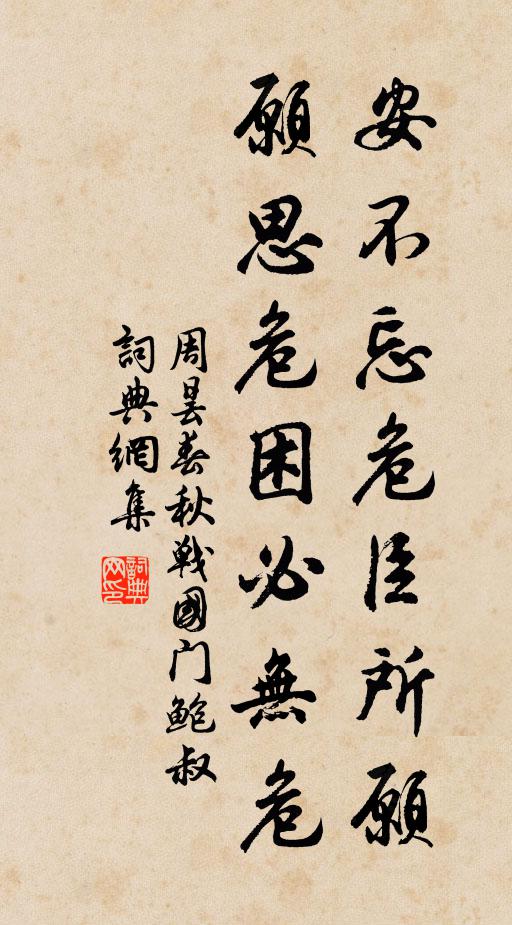 安不忘危臣所願
願思危困必無危
周昙春秋戰國门鮑叔
詞典網集
詞典网印